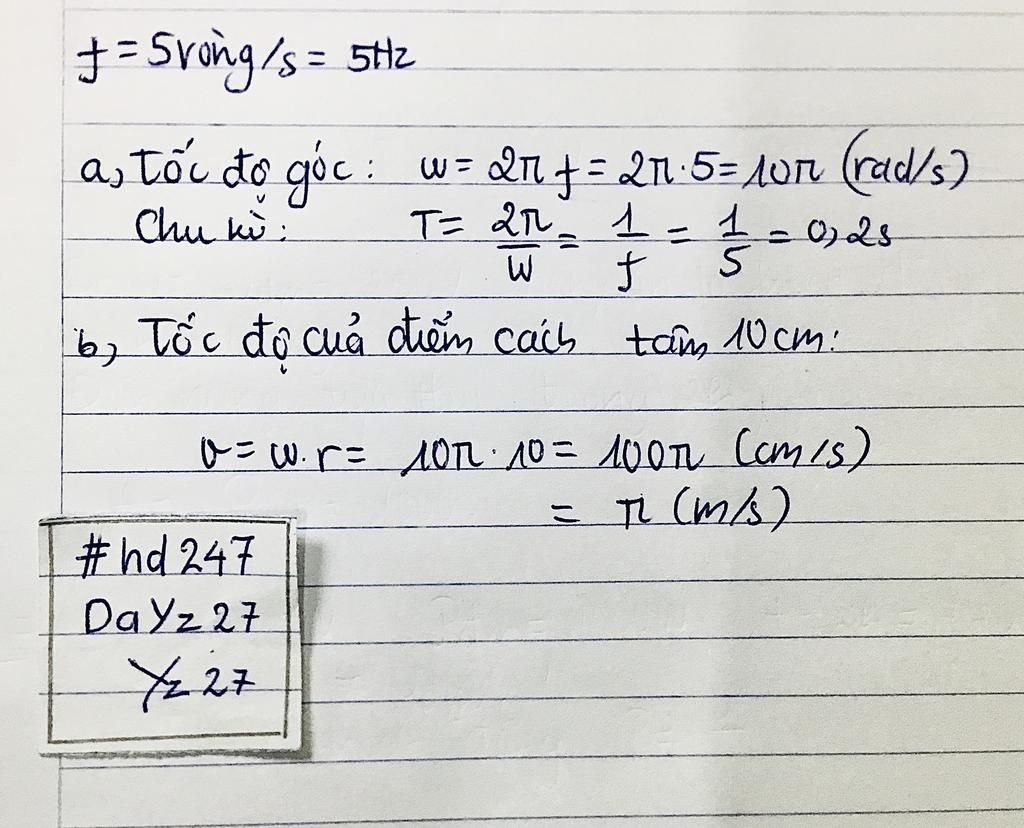 f = 5vòng/s = 5Hz
a, Tốc độ góc: w = 2π f = 2π · 5 = 10π (rad/s)
Chu kì: T = 2π/w = 1/f = 1/5 = 0,2s
b, Tốc độ cuả điểm cách tâm 10cm:
v = w.r = 10π · 10 = 100π (cm/s)
= π (m/s)
#hd247
DaYz27
Yz27